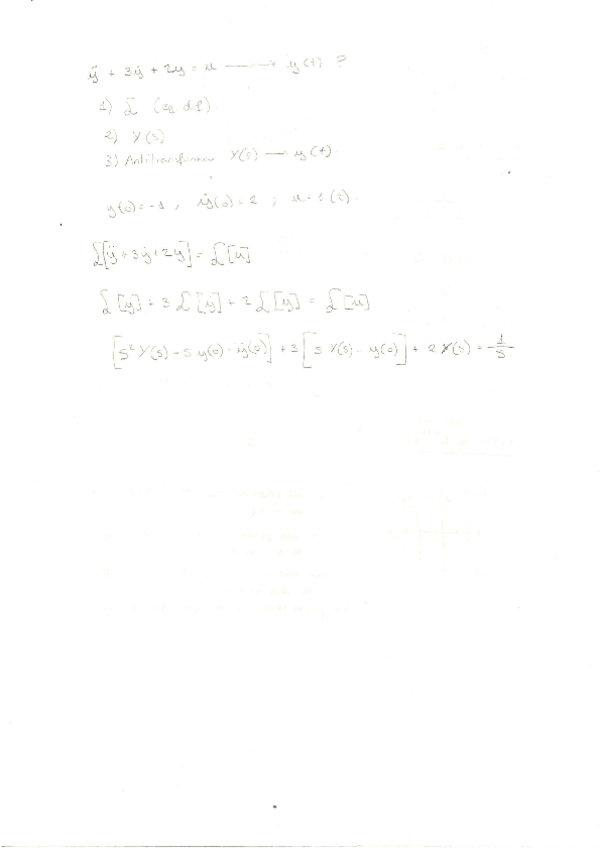 ÿ + 3ẏ + 2y = u ⟶ y(t) ?
1) ℒ (eq dif)
2) Y(s)
3) Antitransformar Y(s) ⟶ y(t)
y(0) = -1 ; ẏ(0) = 2 ; u = 1(t)
ℒ[ÿ + 3ẏ + 2y] = ℒ[u]
ℒ[ÿ] + 3 ℒ[ẏ] + 2 ℒ[y] = ℒ[u]
[s² Y(s) - s y(0) - ẏ(0)] + 3 [s Y(s) - y(0)] + 2 Y(s) = 1/s